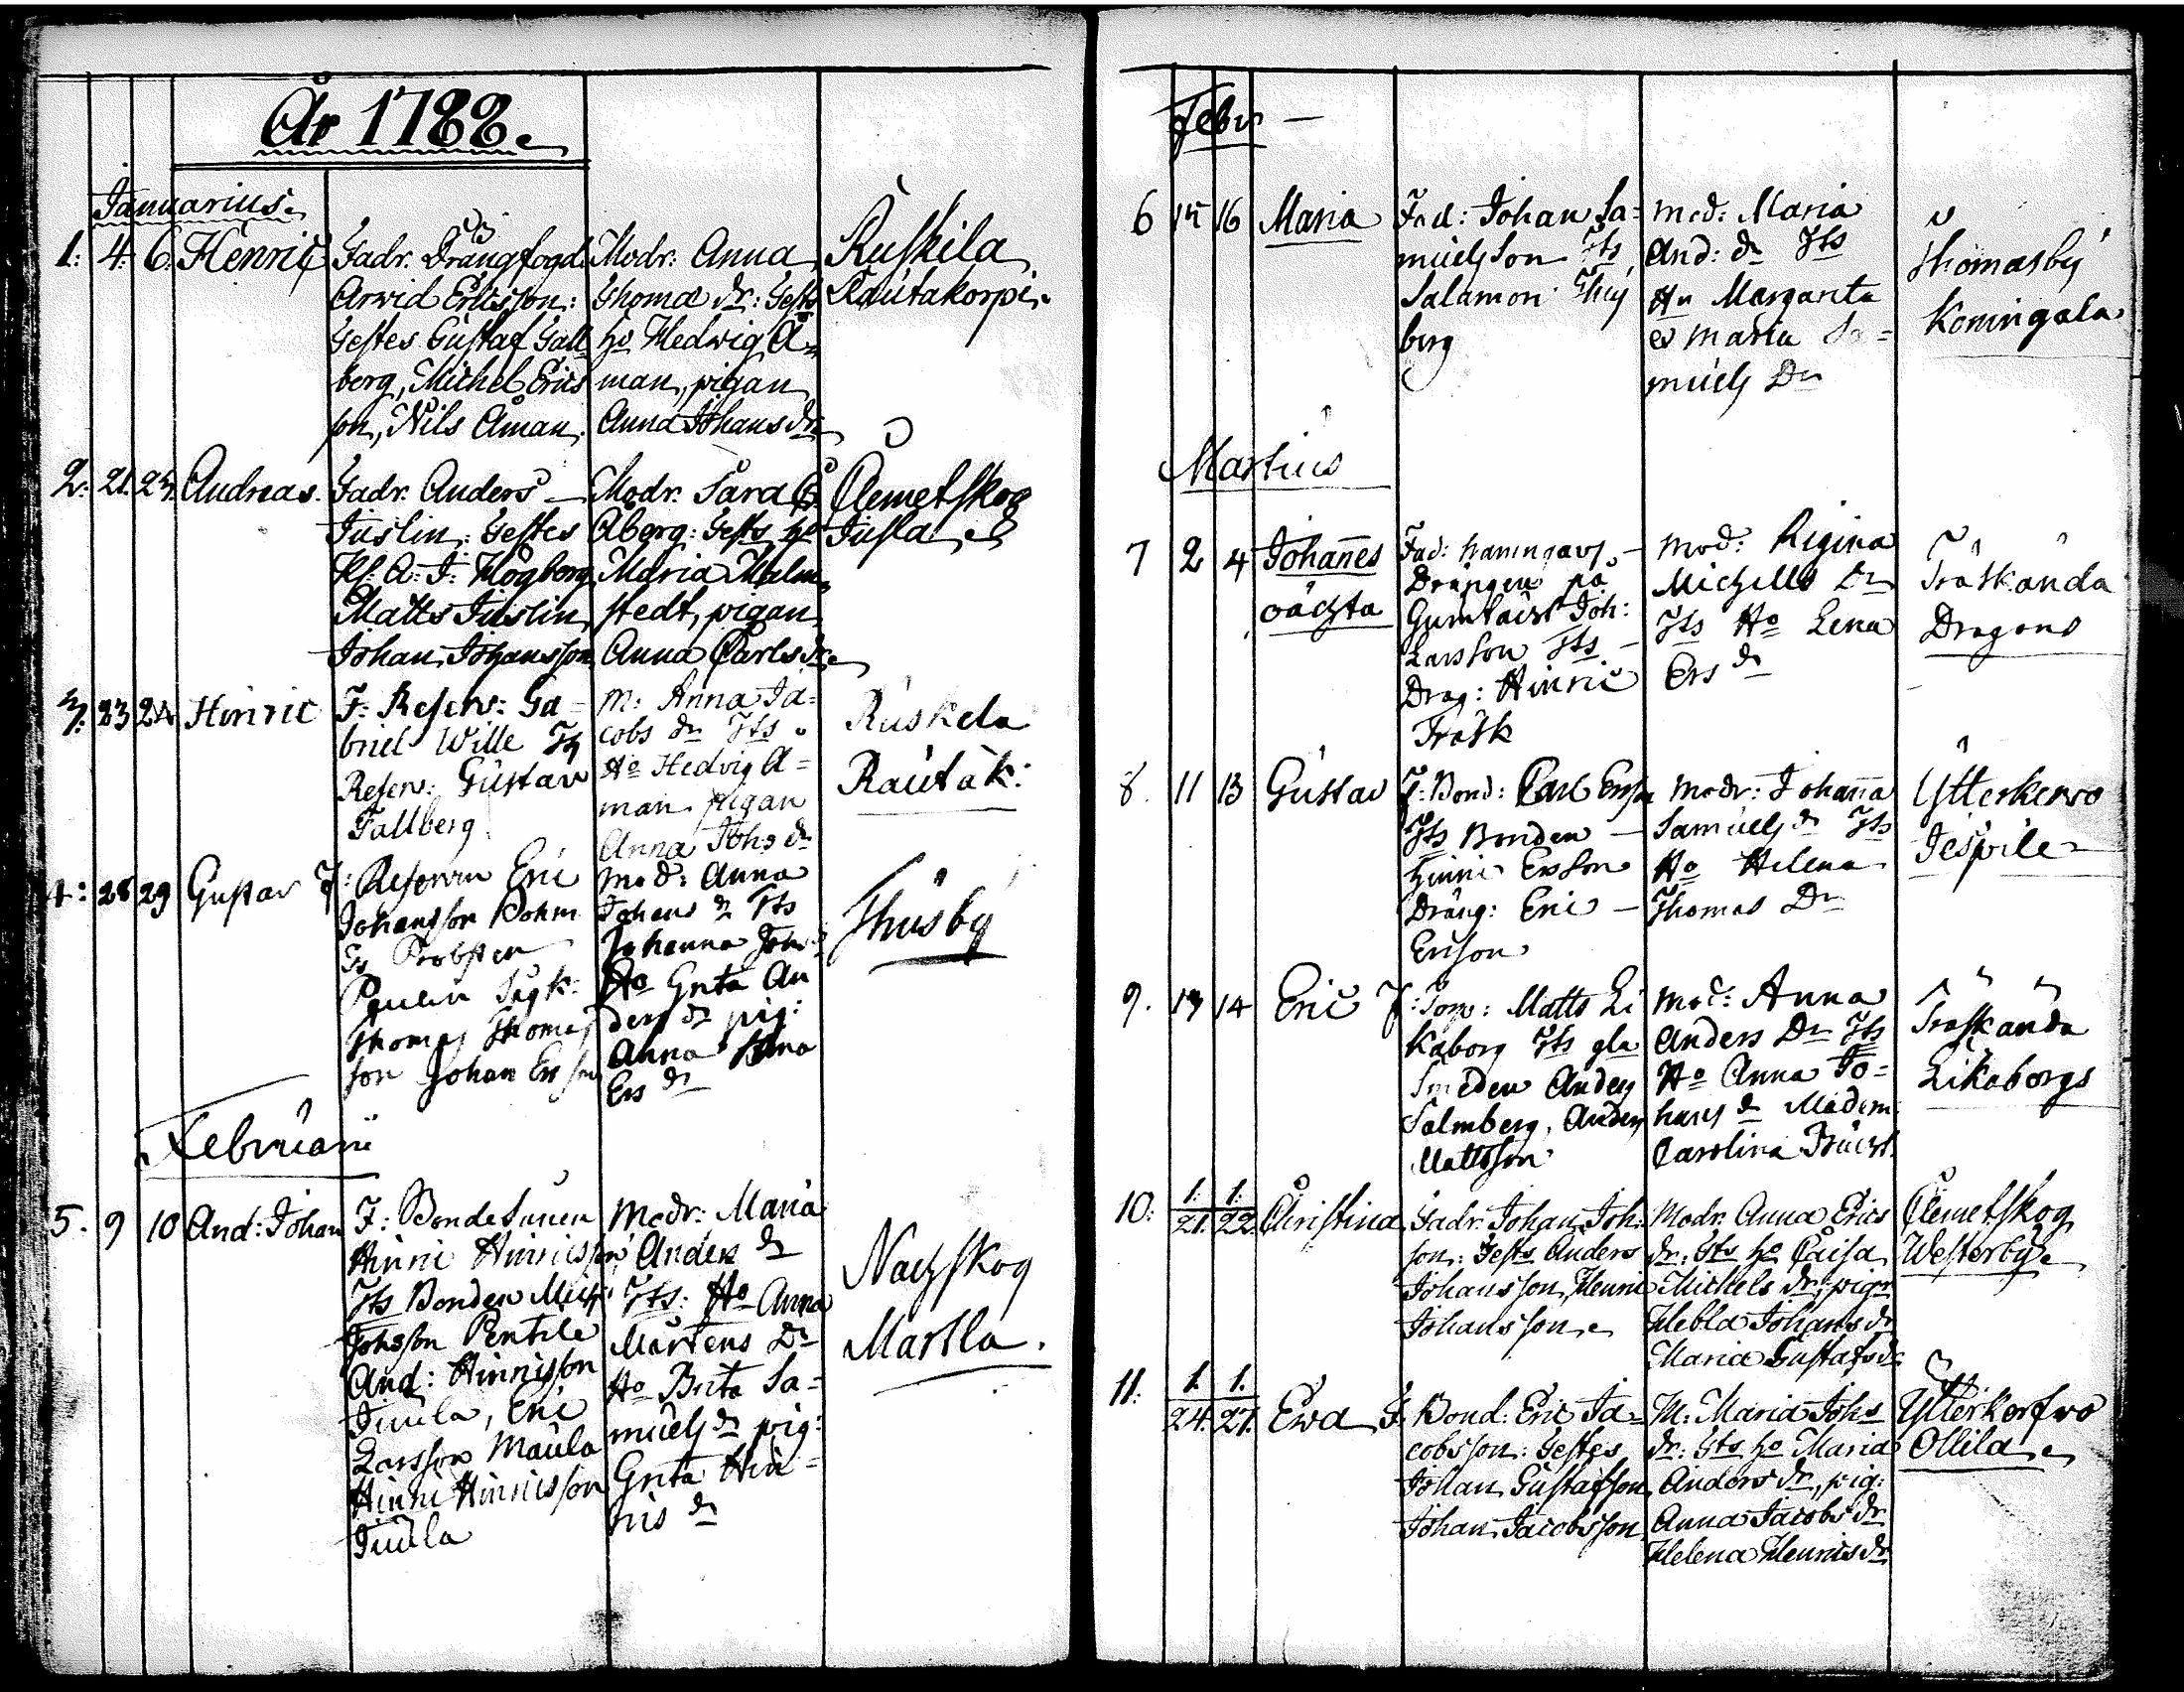 År 1788.
Januarius.
1: 4. 6. Henric Fadr. Drängfogd. Modr: Anna Ruskila
Arvid Ericsson: Thomæ dr: Testes Rautakorpi.
Testes Gustaf Fall= ho Hedwig Å=
berg, Michel Erics man, pigan
son, Nils Åman. Anna Johans dr.
2: 21. 23. Andreas. Fadr. Anders Modr. Sara C. Clemetskog
Juslin: Testes Åberg: Tests ho Jusla
Kl. A: J: Högberg Maria Malm=
Matts Juslin, stedt, pigan
Johan Johansson Anna Carls dr.
3. 23 24 Hinric F: Reserv: Ga= M: Anna Ja= Ruskela
briel Wille Ts cobs dr Tts Rautak:
Reserv: Gustav Ho Hedvig Å=
Fallberg man pigan
Anna Johs dr
4: 28 29 Gustav F: Reserven Eric Mod: Anna Thusby
Johansson Bohm Johans dr Tts
Probsten Johanna
Ho Greta An
Thomas Thomas ders dr pig:
son Johan Ersson Anna
Ers dr
Februarii
5. 9 10 And: Johan F: Bonde Sunen Modr: Maria Nackskog
Hinric Hinricsson Anders dr Martla.
Tts Bonden Tts: Ho Anna
Johsson Pentile Mårtens Dr
And: Hinricsson Ho Brita Sa=
Juula, Eric muels dr pig:
Larsson Maula Greta Hin=
Hinric Hinricsson rics dr
Juula
Febr —
6 15 16 Maria Fad: Johan Sa= Mod: Maria Thomasby
muelsson Tts And: dr Tts Koningala
Salamon Thus Ho Margareta
berg et Maria Sa=
muels Dr
Martius
7 2 4 Johanes Fad: Mod: Regina Träskända
oächta Drängen på Michells Dr Dragons
Joh: Tts Ho Lena
Larsson Tts Ers dr
Drag: Hinric
Träsk
8. 11 13 Gustav F: Bond: Carl Ersson Modr: Johana Ytterkervo
Tts Bonden — Samuels dr Tts Jespile
Hinric Ersson Ho Helena
Dräng: Eric — Thomas Dr
Ersson
9. 13 14 Eric F: Torp: Matts Li Mod: Anna Träskända
kaborg Tts gla Anders Dr Tts Likaborgs
Smeden Anders Ho Anna Jo=
Salmberg, Anders hans dr Madem
Mattsson Carolina
10: 1. 21. 1. 22. Christina Fadr. Johan Joh: Modr. Anna Erics Clemetskog
son: Tests Anders dr: Tts ho Caisa Westerby.
Johansson, Henric Michels dr, pigr
Johansson. Hebla Johans dr
Maria Gustafs dr
11: 1. 24. 1. 27. Ewa F. Bond: Eric Ja= M: Maria Johs Ytterkerfvo
cobsson: Testes dr: Tts ho Maria Ollila.
Johan Gustafsson, Anders dr, pig:
Johan Jacobsson Anna Jacobs dr
Helena Henrics dr